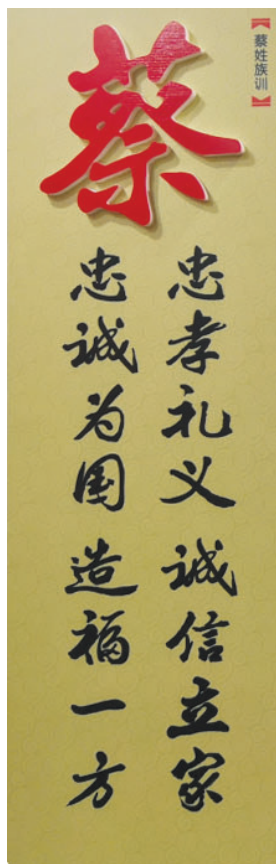 【蔡姓族训】
蔡
忠孝礼义 诚信立家
忠诚为国 造福一方